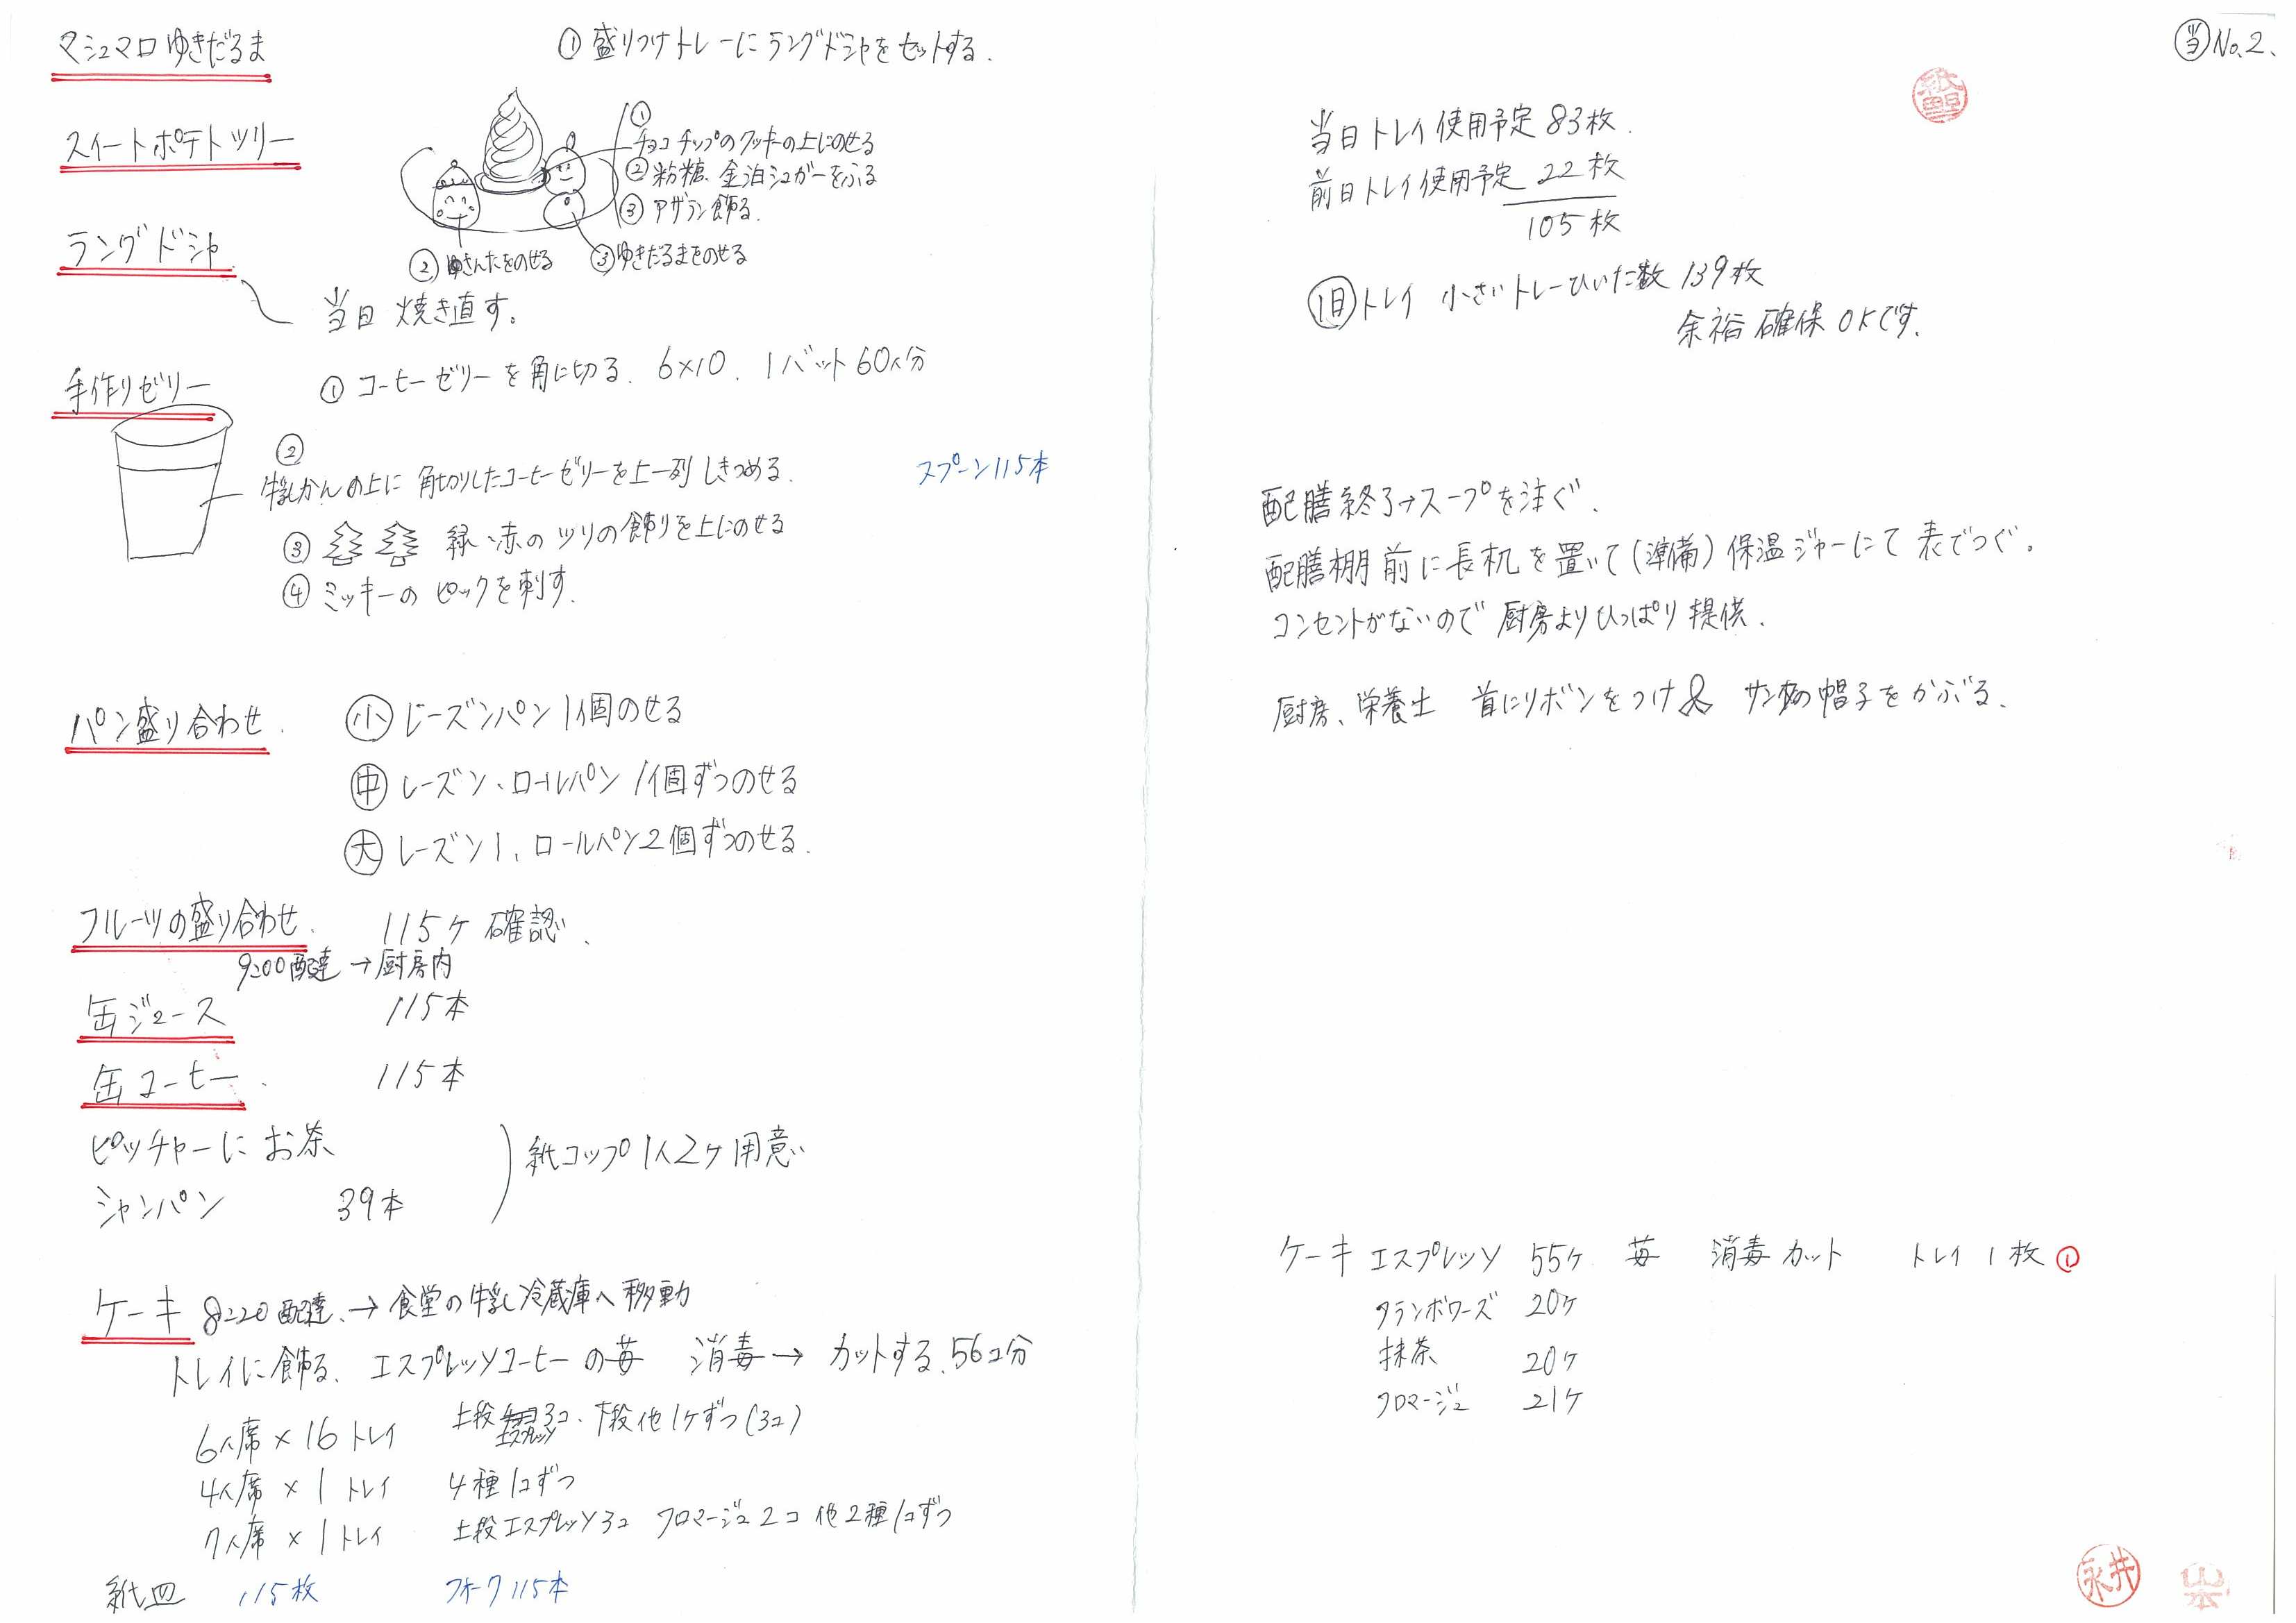 マシュマロゆきだるま
① 盛りつけトレーにラングドシャをセットする.
スイートポテトツリー
①
チョコチップのクッキーの上にのせる
② 粉糖、金泊シュガーをふる
③ アザラン飾る.
② ゆきんたをのせる
③ ゆきだるまをのせる
ラングドシャ
当日 焼き直す。
手作りゼリー
① コーヒーゼリーを角に切る. 6×10. 1バット60人分
②
牛乳かんの上に 角切りしたコーヒーゼリーを上一列しきつめる.
スプーン115本
③ 緑、赤のツリの飾りを上にのせる
④ ミッキーのピックを刺す.
パン盛り合わせ.
小 レーズンパン1個のせる
中 レーズン、ロールパン 1個ずつのせる
大 レーズン1、ロールパン2個ずつのせる.
フルーツの盛り合わせ. 115ケ 確認.
9:00配達→厨房内
缶ジュース 115本
缶コーヒー. 115本
ピッチャーに お茶
シャンパン 39本
紙コップ1人2ケ用意
ケーキ 8:20配達.→食堂の牛乳冷蔵庫へ移動
トレイに飾る、エスプレッソコーヒーの苺 消毒→カットする.56コ分
6人席×16トレイ 上段 エスプレッソ 3コ.下段他1ケずつ(3コ)
4人席×1トレイ 4種1コずつ
7人席×1トレイ 上段エスプレッソ3コ フロマージュ2コ 他2種1コずつ
紙皿 115枚 フォーク115本
当 No.2.
当日トレイ使用予定 83枚.
前日トレイ使用予定 22枚
105枚
トレイ 小さいトレーひいた数 139枚
余裕確保OKです.
配膳終了→スープを注ぐ.
配膳棚前に長机を置いて(準備)保温ジャーにて表でつぐ.
コンセントがないので厨房よりひっぱり提供.
厨房、栄養士 首にリボンをつけ サンタの帽子をかぶる.
ケーキ エスプレッソ 55ケ 苺 消毒カット トレイ1枚①
フランボワーズ 20ケ
抹茶 20ケ
フロマージュ 21ケ
永井